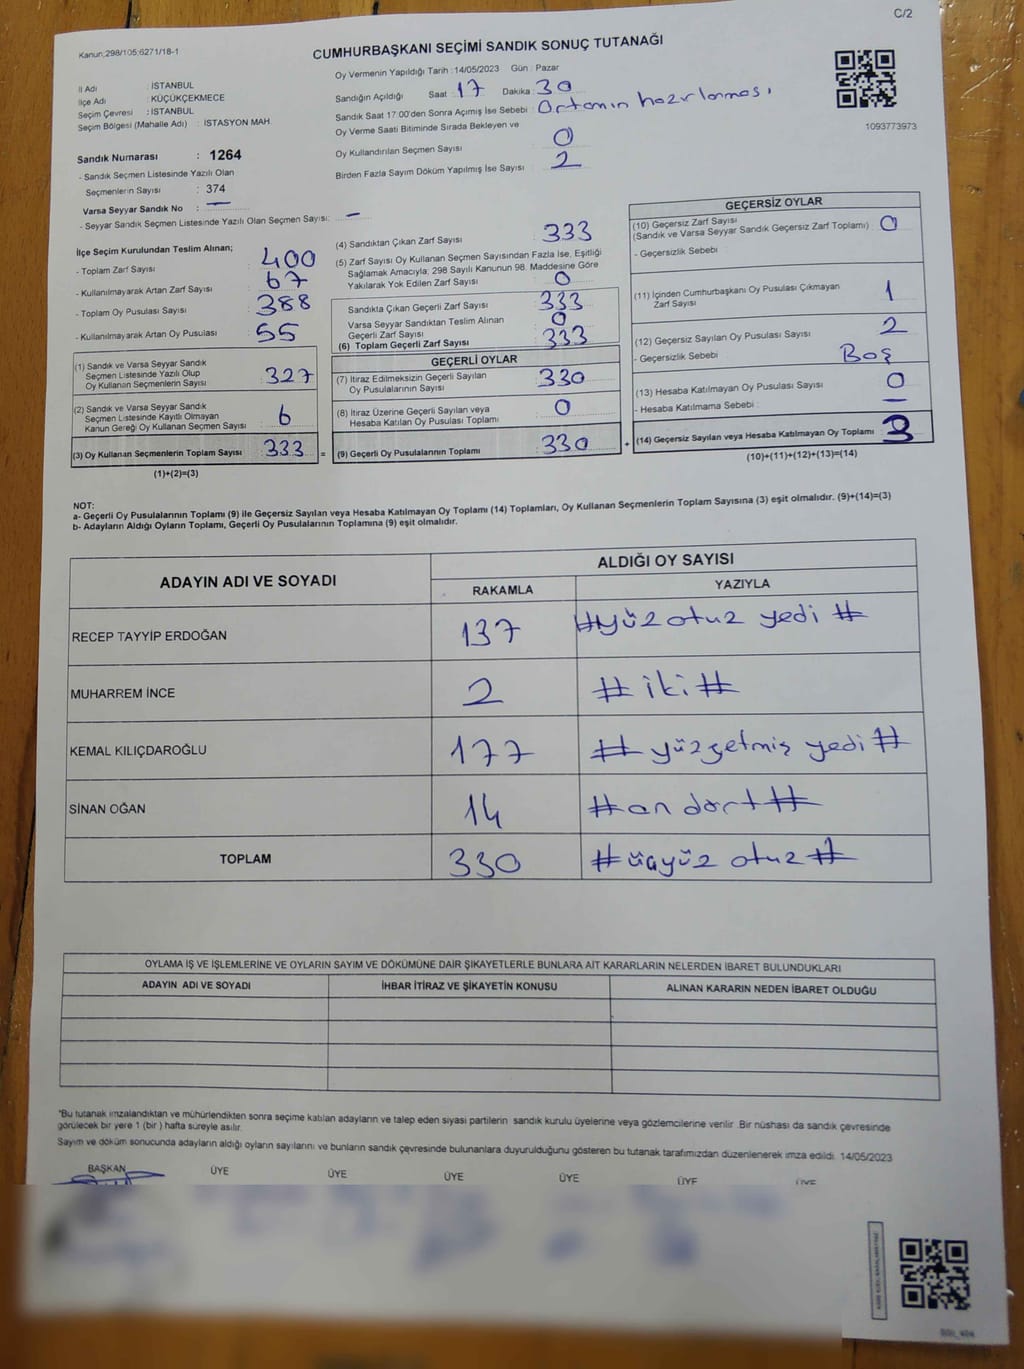 C/2
Kanun;298/105;6271/18-1
CUMHURBAŞKANI SEÇİMİ SANDIK SONUÇ TUTANAĞI
İl Adı : İSTANBUL
İlçe Adı : KÜÇÜKÇEKMECE
Seçim Çevresi : İSTANBUL
Seçim Bölgesi (Mahalle Adı) : İSTASYON MAH.
Sandık Numarası : 1264
- Sandık Seçmen Listesinde Yazılı Olan
Seçmenlerin Sayısı : 374
Varsa Seyyar Sandık No : —
- Seyyar Sandık Seçmen Listesinde Yazılı Olan Seçmen Sayısı: —
Oy Vermenin Yapıldığı Tarih : 14/05/2023 Gün : Pazar
Sandığın Açıldığı Saat 17 Dakika : 30
Sandık Saat 17:00'den Sonra Açımış İse Sebebi : Ortamın hazırlanması
Oy Verme Saati Bitiminde Sırada Bekleyen ve
Oy Kullandırılan Seçmen Sayısı : 0
Birden Fazla Sayım Döküm Yapılmış İse Sayısı : 2
1093773973
İlçe Seçim Kurulundan Teslim Alınan;
- Toplam Zarf Sayısı : 400
- Kullanılmayarak Artan Zarf Sayısı : 67
- Toplam Oy Pusulası Sayısı : 388
- Kullanılmayarak Artan Oy Pusulası : 55
(1) Sandık ve Varsa Seyyar Sandık
Seçmen Listesinde Yazılı Olup
Oy Kullanan Seçmenlerin Sayısı : 327
(2) Sandık ve Varsa Seyyar Sandık
Seçmen Listesinde Kayıtlı Olmayan
Kanun Gereği Oy Kullanan Seçmen Sayısı : 6
(3) Oy Kullanan Seçmenlerin Toplam Sayısı : 333 =
(1)+(2)=(3)
(4) Sandıktan Çıkan Zarf Sayısı : 333
(5) Zarf Sayısı Oy Kullanan Seçmen Sayısından Fazla İse, Eşitliği
Sağlamak Amacıyla; 298 Sayılı Kanunun 98. Maddesine Göre
Yakılarak Yok Edilen Zarf Sayısı : 0
Sandıkta Çıkan Geçerli Zarf Sayısı : 333
Varsa Seyyar Sandıktan Teslim Alınan
Geçerli Zarf Sayısı : 0
(6) Toplam Geçerli Zarf Sayısı : 333
GEÇERLİ OYLAR
(7) İtiraz Edilmeksizin Geçerli Sayılan
Oy Pusulalarının Sayısı : 330
(8) İtiraz Üzerine Geçerli Sayılan veya
Hesaba Katılan Oy Pusulası Toplamı : 0
(9) Geçerli Oy Pusulalarının Toplamı : 330 +
GEÇERSİZ OYLAR
(10) Geçersiz Zarf Sayısı
(Sandık ve Varsa Seyyar Sandık Geçersiz Zarf Toplamı) : 0
- Geçersizlik Sebebi :
(11) İçinden Cumhurbaşkanı Oy Pusulası Çıkmayan
Zarf Sayısı : 1
(12) Geçersiz Sayılan Oy Pusulası Sayısı : 2
- Geçersizlik Sebebi : Boş
(13) Hesaba Katılmayan Oy Pusulası Sayısı : 0
- Hesaba Katılmama Sebebi : —
(14) Geçersiz Sayılan veya Hesaba Katılmayan Oy Toplamı : 3
(10)+(11)+(12)+(13)=(14)
NOT:
a- Geçerli Oy Pusulalarının Toplamı (9) ile Geçersiz Sayılan veya Hesaba Katılmayan Oy Toplamı (14) Toplamları, Oy Kullanan Seçmenlerin Toplam Sayısına (3) eşit olmalıdır. (9)+(14)=(3)
b- Adayların Aldığı Oyların Toplamı, Geçerli Oy Pusulalarının Toplamına (9) eşit olmalıdır.
ADAYIN ADI VE SOYADI ALDIĞI OY SAYISI
RAKAMLA YAZIYLA
RECEP TAYYİP ERDOĞAN 137 #yüz otuz yedi #
MUHARREM İNCE 2 # iki #
KEMAL KILIÇDAROĞLU 177 # yüzyetmiş yedi #
SİNAN OĞAN 14 #on dört #
TOPLAM 330 # üçyüz otuz #
OYLAMA İŞ VE İŞLEMLERİNE VE OYLARIN SAYIM VE DÖKÜMÜNE DAİR ŞİKAYETLERLE BUNLARA AİT KARARLARIN NELERDEN İBARET BULUNDUKLARI
ADAYIN ADI VE SOYADI İHBAR İTİRAZ VE ŞİKAYETİN KONUSU ALINAN KARARIN NEDEN İBARET OLDUĞU
*Bu tutanak imzalandıktan ve mühürlendikten sonra seçime katılan adayların ve talep eden siyasi partilerin sandık kurulu üyelerine veya gözlemcilerine verilir. Bir nüshası da sandık çevresinde
görülecek bir yere 1 (bir ) hafta süreyle asılır.
Sayım ve döküm sonucunda adayların aldığı oyların sayılarını ve bunların sandık çevresinde bulunanlara duyurulduğunu gösteren bu tutanak tarafımızdan düzenlenerek imza edildi. 14/05/2023
BAŞKAN ÜYE ÜYE ÜYE ÜYE ÜYE ÜYE